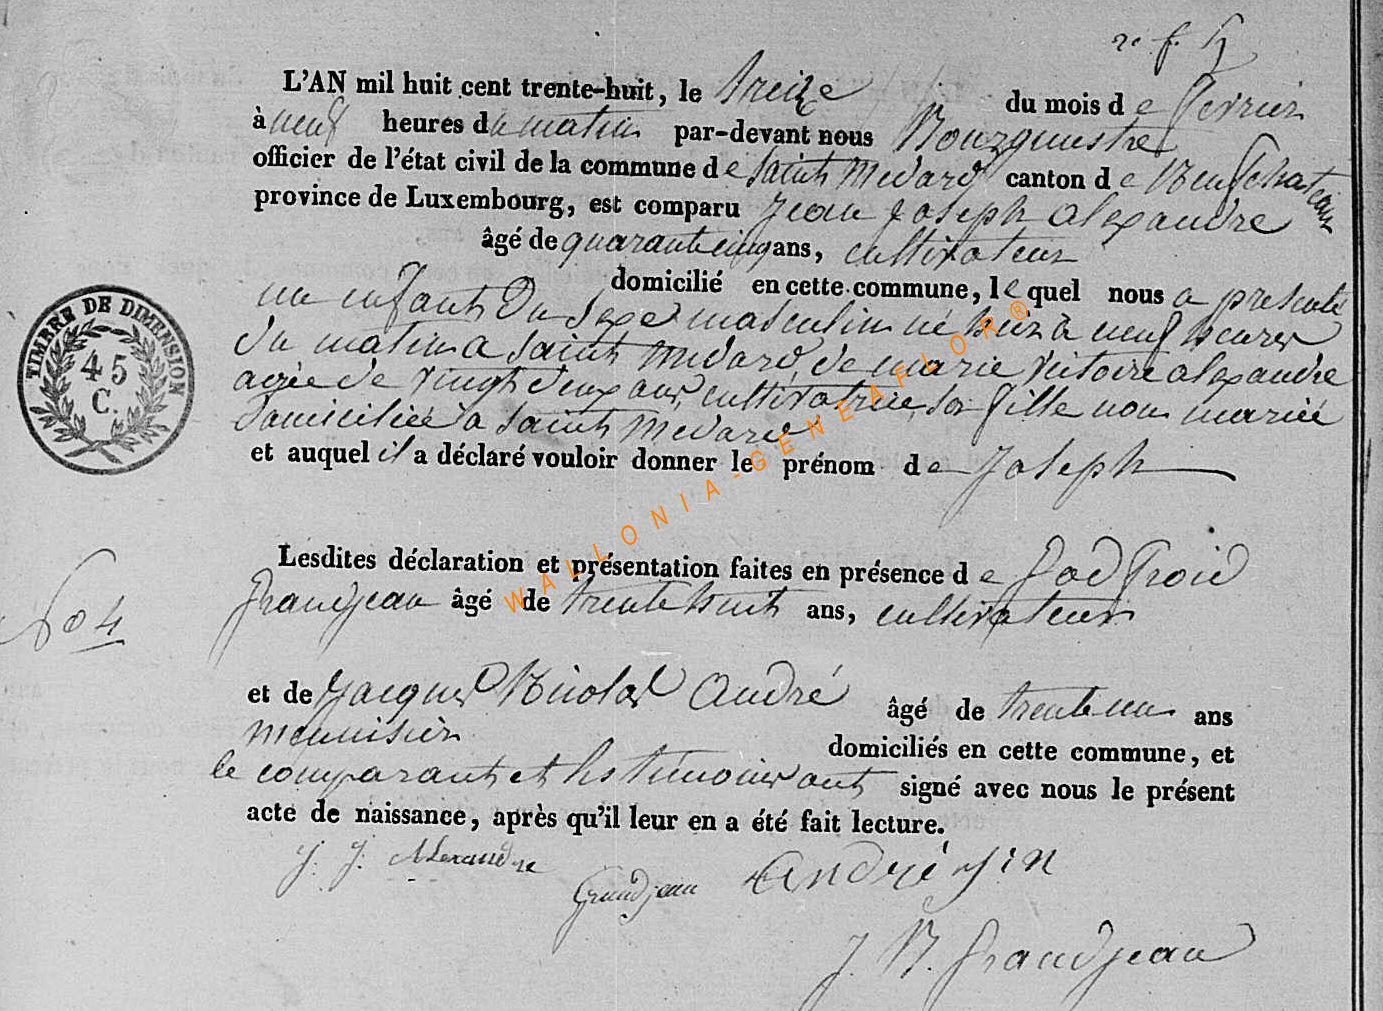 L'AN mil huit cent trente-huit, le treize du mois de fevrier
à neuf heures du matin par-devant nous Bourgmestre
officier de l'état civil de la commune de Saint Medard canton de Neufchateau
province de Luxembourg, est comparu Jean Joseph alexandre
âgé de quarante cinq ans, cultivateur
domicilié en cette commune, lequel nous a presenté
un enfant du sexe masculin né hier à neuf heures
du matin a Saint Medard, de marie victoire alexandre
agée de vingt deux ans, cultivatrice, sa fille non mariée
domiciliée a Saint Medard
et auquel il a déclaré vouloir donner le prénom de Joseph
TIMBRE DE DIMENSION
45
C.
WALLONIA-GENEAFLOR®
Lesdites déclaration et présentation faites en présence de God froid
grandjean âgé de trente huit ans, cultivateur
604
et de Jacques Nicolas André âgé de trente un ans
menuisier domiciliés en cette commune, et
le comparant et les témoins ont signé avec nous le présent
acte de naissance, après qu'il leur en a été fait lecture.
J. J. Alexandre
Grandjean
André J N
J. N. Grandjean